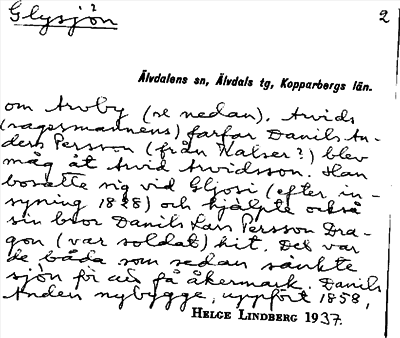 Glysjön
2
Älvdalens sn, Älvdals tg, Kopparbergs län.
om Arvby (se nedan). Arvids
(sagesmannens) farfar Danils An-
ders Persson (från Kalser?) blev
måg åt Arvid Arvidsson. Han
bosatte sig vid Gljosi (efter in-
syning 1838) och hjälpte också
sin bror Danils Lars Persson Dra-
gon (var soldat) hit. Det var
de båda som sedan sänkte
sjön för att få åkermark. Danils
Anders nybygge, uppfört 1858,
HELGE LINDBERG 1937.